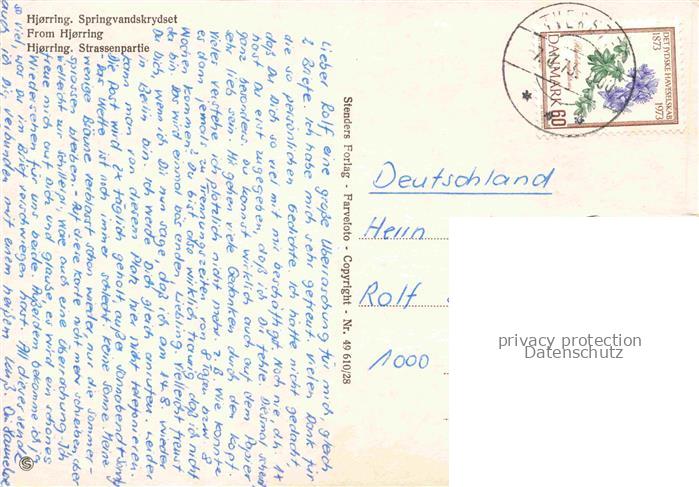 Hjørring. Springvandskrydset
From Hjørring
Hjørring. Strassenpartie
Stenders Forlag - Farvefoto - Copyright - Nr. 49 610/28
DET JYDSKE HAVESELSKAB
1873
1973
DANMARK 60
Deutschland
Herrn
Rolf
1000
privacy protection
Datenschutz
Lieber Rolf, eine große Überraschung für mich, gleich
2 Briefe. Ich habe mich sehr gefreut. Vielen Dank für
die so persönlichen Gedichte. Ich hätte nicht gedacht,
daß Du Dich so viel mit mir beschäftigst. Noch nie, d.h.
hast Du erst zugegeben, daß ich Dir fehle. Diesmal scheint
ganz besonders. Du kannst wirklich auch auf dem Papier
sehr lieb sein. Mir gehen viele Gedanken durch den Kopf.
Vieler verstehe ich plötzlich nicht mehr. z.B. Wie konnte
es denn einmal zu Trennungszeiten von 8 Tagen bzw. 3
Wochen kommen? Du bist also wirklich traurig, daß ich nicht
da bin. Das wird einmal was anders, Liebling. Vielleicht freust
Du Dich, wenn ich Dir nun sage, daß ich am 14.8. wieder
in Berlin bin. Ich werde Dich gleich anrufen. Leider
kann man von diesem Platz hier nicht telefonieren.
Die Post wird 1x täglich geholt, außer Sonnabend + Sonntag
Das Wetter ist noch immer schlecht. Keine Sonne. Meine
wenige Bräune verblasst schon wieder, nur die Sommer-
sprossen bleiben. - Auf diese Karte nicht mehr schreiben, aber
vielleicht zur Schulleipzi, wäre auch eine Überraschung. Ich
freue mich auf Dich und glaube, es wird ein schönes
Wiedersehen für uns beide. Außerdem bekomme ich ja
so viel, was Du im Brief verschwiegen hast. All dieses sende
auch ich Dir verbunden mit einem heißen Kuß.